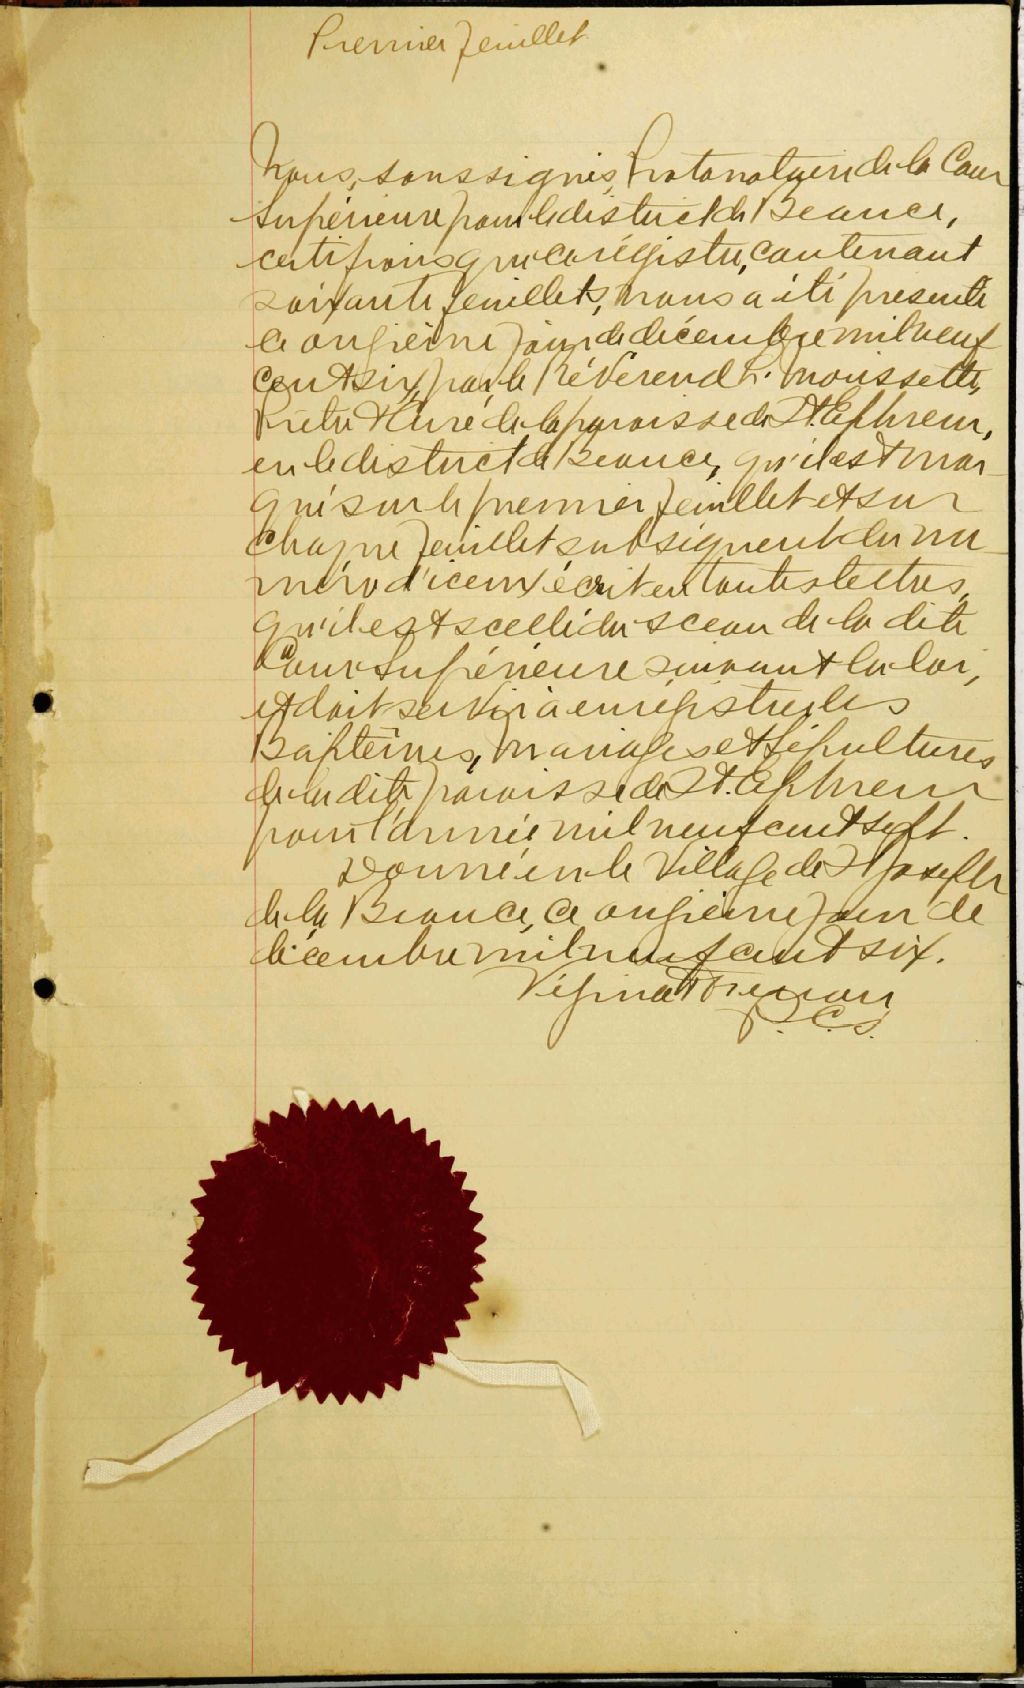 Premier feuillet
Nous, soussignés, Protonotaire de la Cour
Supérieure pour le district de Beauce,
certifions que ce régistre, contenant
soixante feuillets, nous a été présenté
ce onzième jour de décembre mil neuf
cent six, par le Révérend L. Moussette,
Prêtre & Curé de la paroisse de St. Ephrem,
en le district de Beauce, qu'il est mar-
qué sur le premier feuillet et sur
chaque feuillet subséquent du nu-
méro d'iceux écrit en toutes lettres,
qu'il est scellé du sceau de la dite
Cour Supérieure suivant la loi,
et doit servir à enrégistrer les
Baptêmes, Mariages et Sépultures
de la dite paroisse de St. Ephrem
pour l'année mil neuf cent sept.
Donné en le Village de St Joseph
de la Beauce, ce onzième jour de
décembre mil neuf cent six.
Vézina & Theriau
P. C. S.